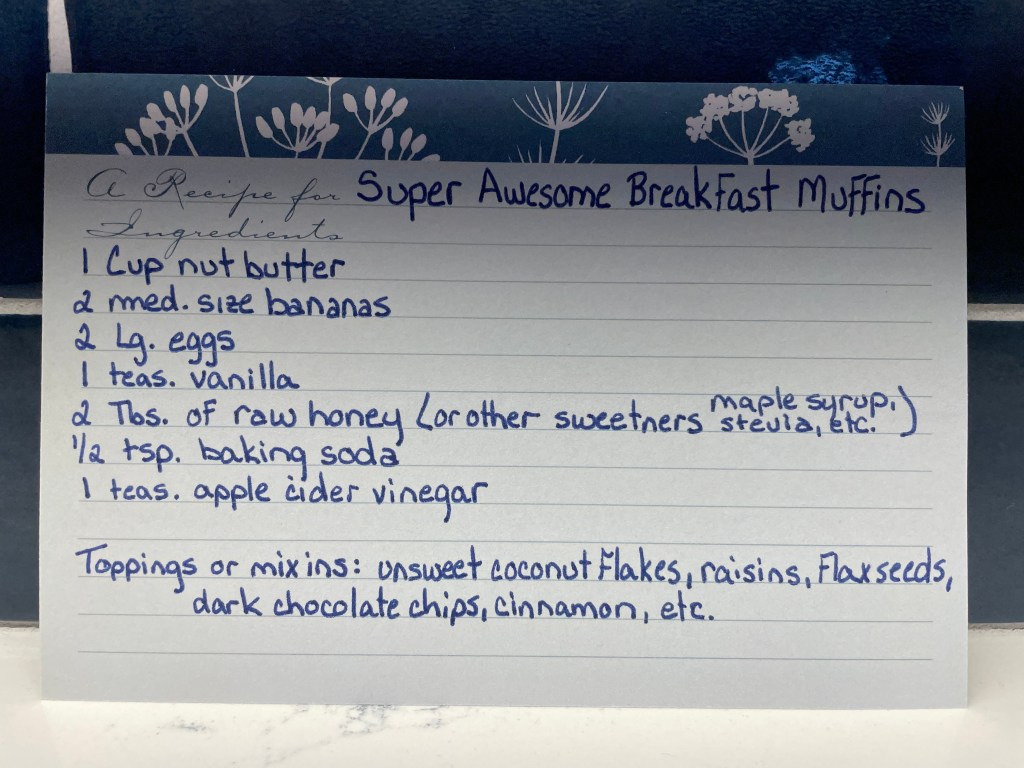 A Recipe for Super Awesome Breakfast Muffins
Ingredients
1 Cup nut butter
2 med. size bananas
2 Lg. eggs
1 teas. vanilla
2 Tbs. of raw honey (or other sweetners maple syrup, stevia, etc.)
1/2 tsp. baking soda
1 teas. apple cider vinegar
Toppings or mix ins: unsweet coconut flakes, raisins, flaxseeds,
dark chocolate chips, cinnamon, etc.